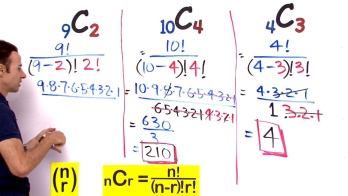 ₉C₂
9!
(9-2)!2!
9·8·7·6·5·4·3·2·1
₁₀C₄
= 10!
(10-4)!4!
= 10·9·8·7·6·5·4·3·2·1
6·5·4·3·2·1
= 630
3
= 210
₄C₃
= 4!
(4-3)!3!
= 4·3·2·1
1 3·2·1
= 4
(n
r)
ₙCᵣ = n!
(n-r)!r!